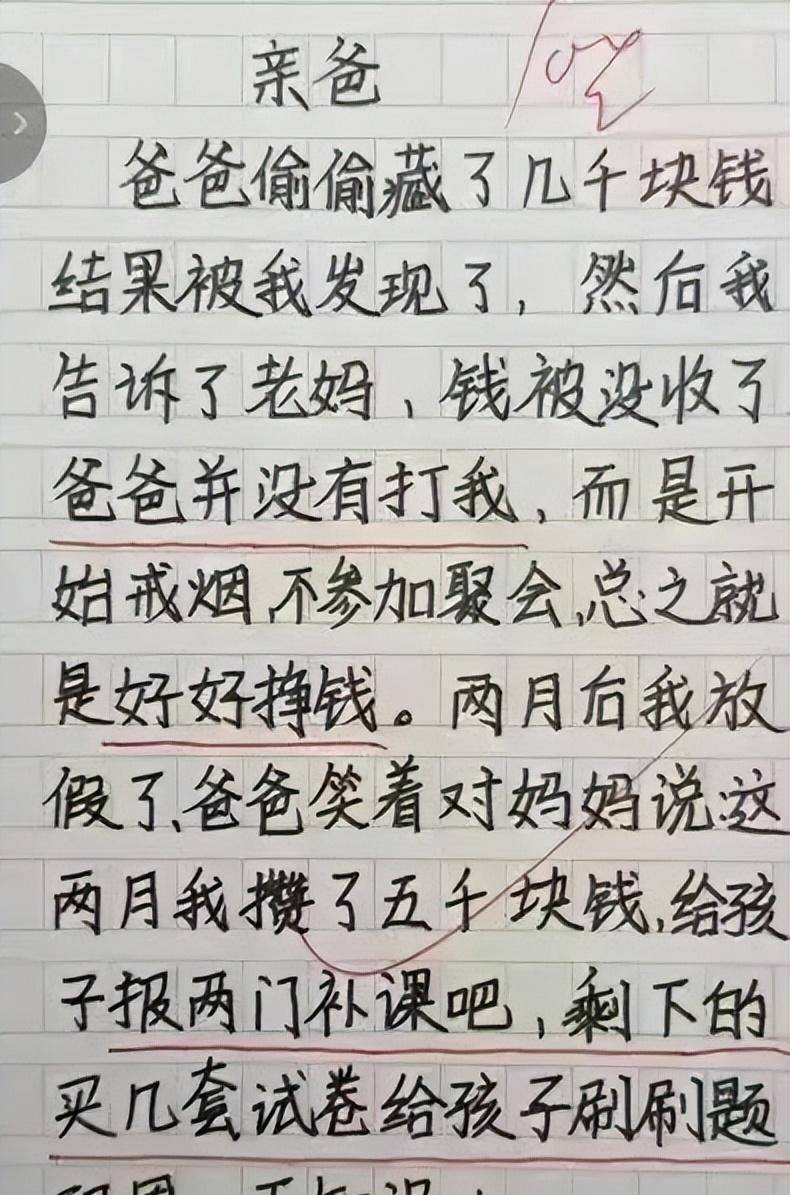 亲爸
爸爸偷偷藏了几千块钱
结果被我发现了，然后我
告诉了老妈，钱被没收了
爸爸并没有打我，而是开
始戒烟，不参加聚会，总之就
是好好挣钱。两月后我放
假了、爸爸笑着对妈妈说：这
两月我攒了五千块钱，给孩
子报两门补课吧，剩下的
买几套试卷给孩子刷刷题